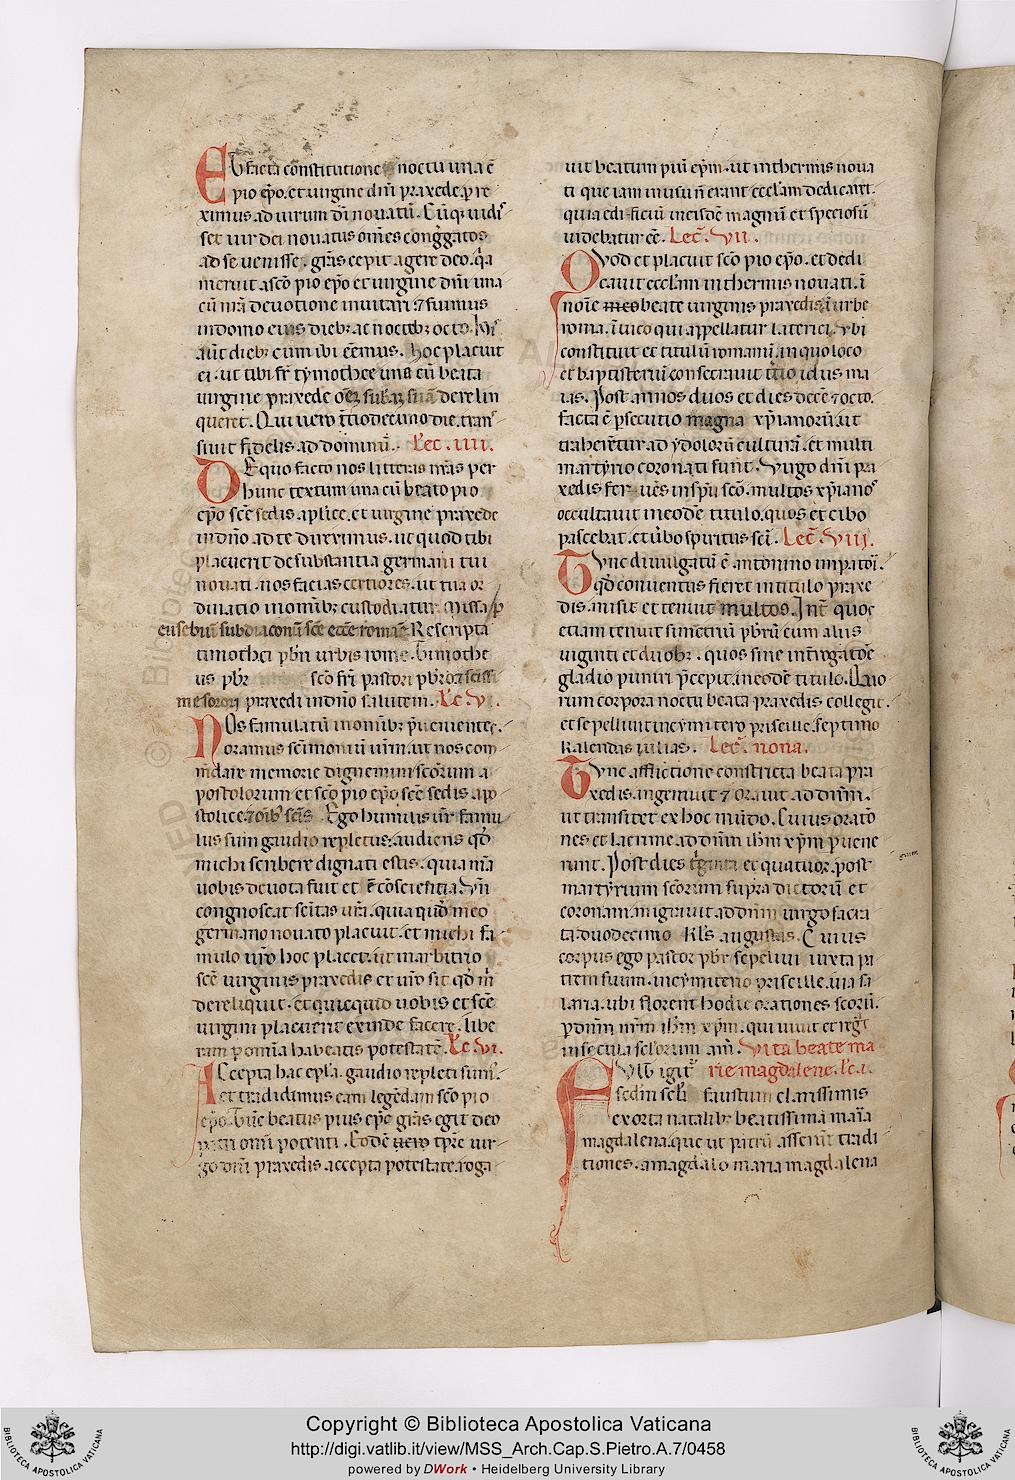 Eb facta constitutione noctu una ē
pio ep̄o. et uirgine dn̄i praxede. pre
ximus. ad uirum dī nouatū. Cūq; uidi
set uir dei nouatus om̄es congḡatos
ad se uenisse. grās cepit agere deo. q̄a
meruit a sc̄o pio ep̄o et uirgine dn̄i una
cū nrā deuotione inuitari. ⁊ fuimus
in domo eius dieb; ac noctib; octo.
aūt dieb; cum ibi eēmus. hoc placuit
ei. ut tibi fr̄ tymothee una cū beata
uirgine praxede derelin
queret. Qui uero t̄tiodecimo die. tran
siuit fidelis. ad dominū. Lec. IIII.
DE quo facto nos litteris nrās per
hunc textum una cū beato pio
ep̄o sc̄e sedis aplice. et uirgine praxede
in dn̄o ad te direximus. ut quod tibi
placuerit de substantia germani tui
nouati. nos facias certiores. ut tua or
dinatio in omnib; custodiatur. Missa p̄
eusebiū subdiaconū sc̄e ecc̄e romāe Rescripta
timothei pbr̄i urbis rome. Timothe
us pbr̄ sc̄o fri pastori pbr̄o ⁊ scissi
me sorori praxedi in dn̄o salutem. Lc̄. V.
NOs famulatū in omnib; p̄uenientes.
oramus sc̄imoniū ur̄m. ut nos com
m̄dare memorie dignemini scōrum a
postolorum et sc̄o pio ep̄o sc̄e sedis apo
stolice ⁊ om̄ib; sc̄is. Ego humilis ur̄ famu
lus sum gaudio repletus. audiens qd̄
michi scribere dignati estis. quia mīa
uobis deuota fuit et ē cōscientia. Vn̄
congnoscat sc̄itas ur̄a. quia quod meo
germano nouato placuit. et michi fa
mulo ur̄o hoc placet. ut in arbitrio
sc̄e uirginis praxedis et ur̄o sit qd̄ m̄
dereliquit. et quicquid uobis et sc̄e
uirgini placuerit exinde facere. libe
ram p̄ omīa habeatis potestatē. Lc̄. VI.
ACcepta hac epl̄a. gaudio repleti sum.
et tradidimus eam legēdam sc̄o pio
ep̄o. Tūc beatus pius ep̄c grās egit deo
patri omīpotenti. Eodē uero tp̄re uir
go dn̄i praxedis accepta potestate. roga
uit beatum piū ep̄m. ut in thermis noua
ti que iam in usu ñ erant ecclām dedicaret.
quia edificiū in eisdē magnū et speciosū
uidebatur eē. Lec̄. VII.
QVod et placuit sc̄o pio ep̄o. et dedi
cauit ecclām in thermis nouati. ī
noīe meo beate uirginis praxedis. ī urbe
roma. ī uico qui appellatur laterici. Vbi
constituit et titulū romanū. in quo loco
et baptisteriū consecrauit t̄tio idus ma
ias. Post annos duos et dies decē ⁊ octo.
facta ē p̄secutio magna xp̄ianorū. ut
traherētur ad ydolorū culturā. et multi
martyrio coronati sunt. Virgo dn̄i pra
xedis feruēs in sp̄u sc̄o. multos xp̄ianos
occultauit in eodē titulo. quos et cibo
pascebat. et ūbo spiritus sc̄i. Lec̄. VIII.
TVnc diuulgatū ē antonino imp̄atori.
qd̄ conuentus fieret in titulo praxe
dis. misit et tenuit multos. Int̄ quos
etiam tenuit simetriū pbr̄ū cum aliis
uiginti et duob;. quos sine int̄rogatōe
gladio puniri p̄cepit. in eodē titulo. Quo
rum corpora noctu beata praxedis collegit.
et sepelliuit in cymiterio priscille. septimo
kalendas iulias. Lec̄. nona.
TVnc afflictione constricta beata pra
xedis. ingemuit ⁊ orauit ad dn̄m.
ut transiret ex hoc mūdo. Cuius oratō
nes et lacrime ad dn̄m ihm̄ xp̄m p̄uene
runt. Post dies t̄ginta et quatuor. post
martyrium scōrum supra dictorū et
coronam. migrauit ad dn̄m uirgo sacra
ta duodecimo kl̄s augustas. Cuius
corpus ego pastor pbr̄ sepeliui iuxta pa
trem suum. in cymiterio priscille. uia sa
laria. ubi florent hodie orationes scorū.
p̄ dn̄m nr̄m ihm̄ xp̄m. qui uiuit et regt̄
in secula sclorum am̄. Vita beate ma
rie magdalene. lc̄. i.
faustum clarissimis
exorta natalib; beatissima maria
magdalena. que ut patrū asserunt tradi
tiones. a magdalo maria magdalena
Copyright © Biblioteca Apostolica Vaticana
http://digi.vatlib.it/view/MSS_Arch.Cap.S.Pietro.A.7/0458
powered by DWork • Heidelberg University Library
BIBLIOTECA APOSTOLICA VATICANA
BIBLIOTECA APOSTOLICA VATICANA